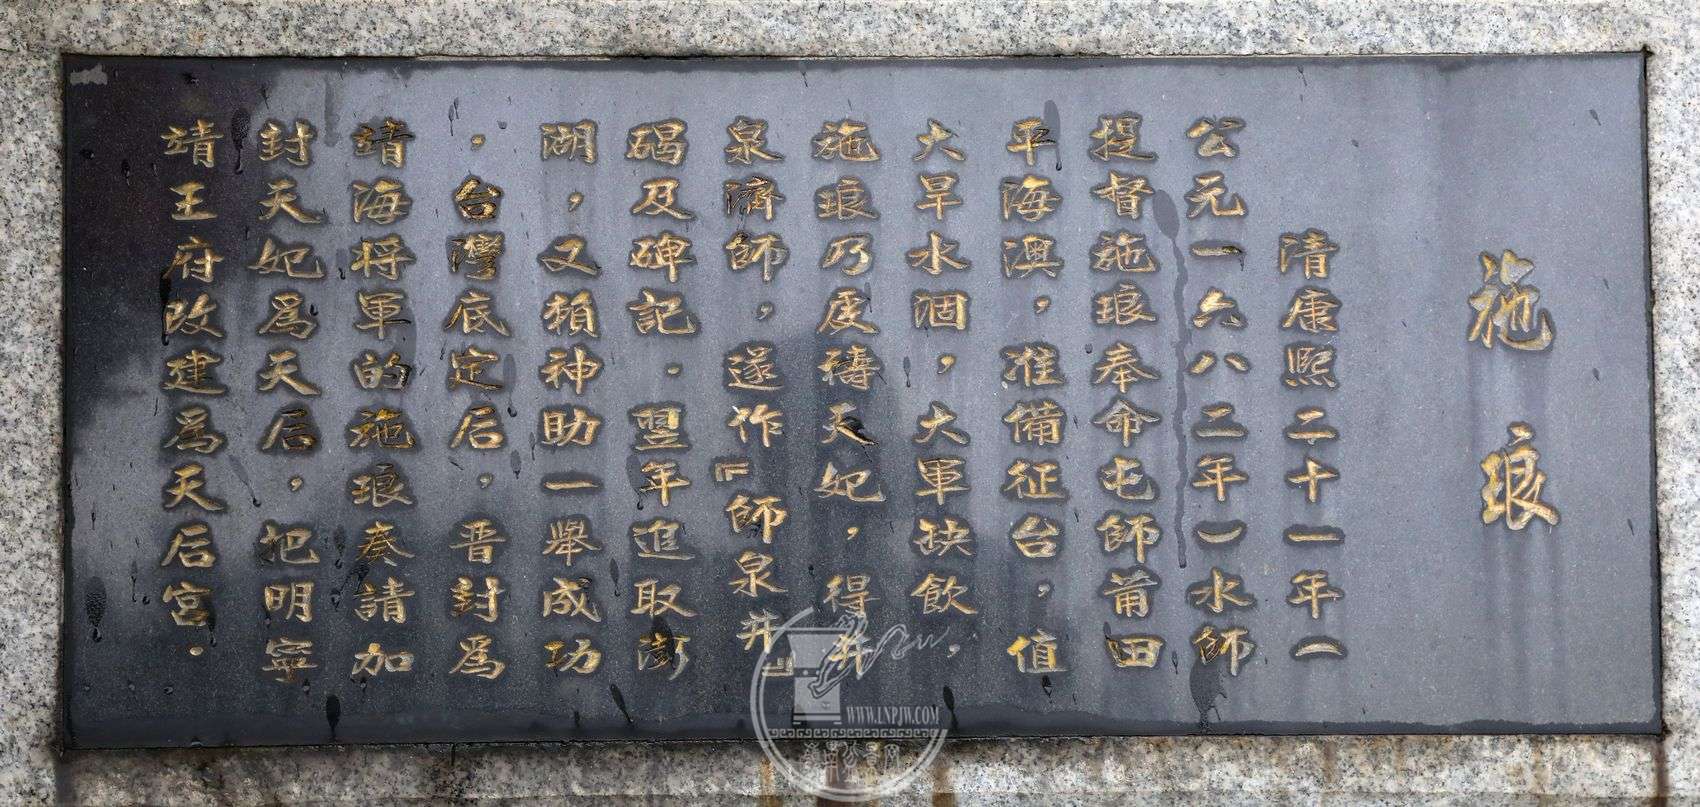 施琅
清康熙二十一年（
公元一六八二年）水師
提督施琅奉命屯師莆田
平海澳，准備征台，值
大旱水涸，大軍缺飲，
施琅乃虔禱天妃，得井
泉濟師，遂作『師泉井』
碣及碑記．翌年進取澎
湖，又賴神助一舉成功
，台灣底定后，晋封爲
靖海將軍的施琅奏請加
封天妃爲天后，把明寧
靖王府改建爲天后宮．
WWW.LNPJW.COM